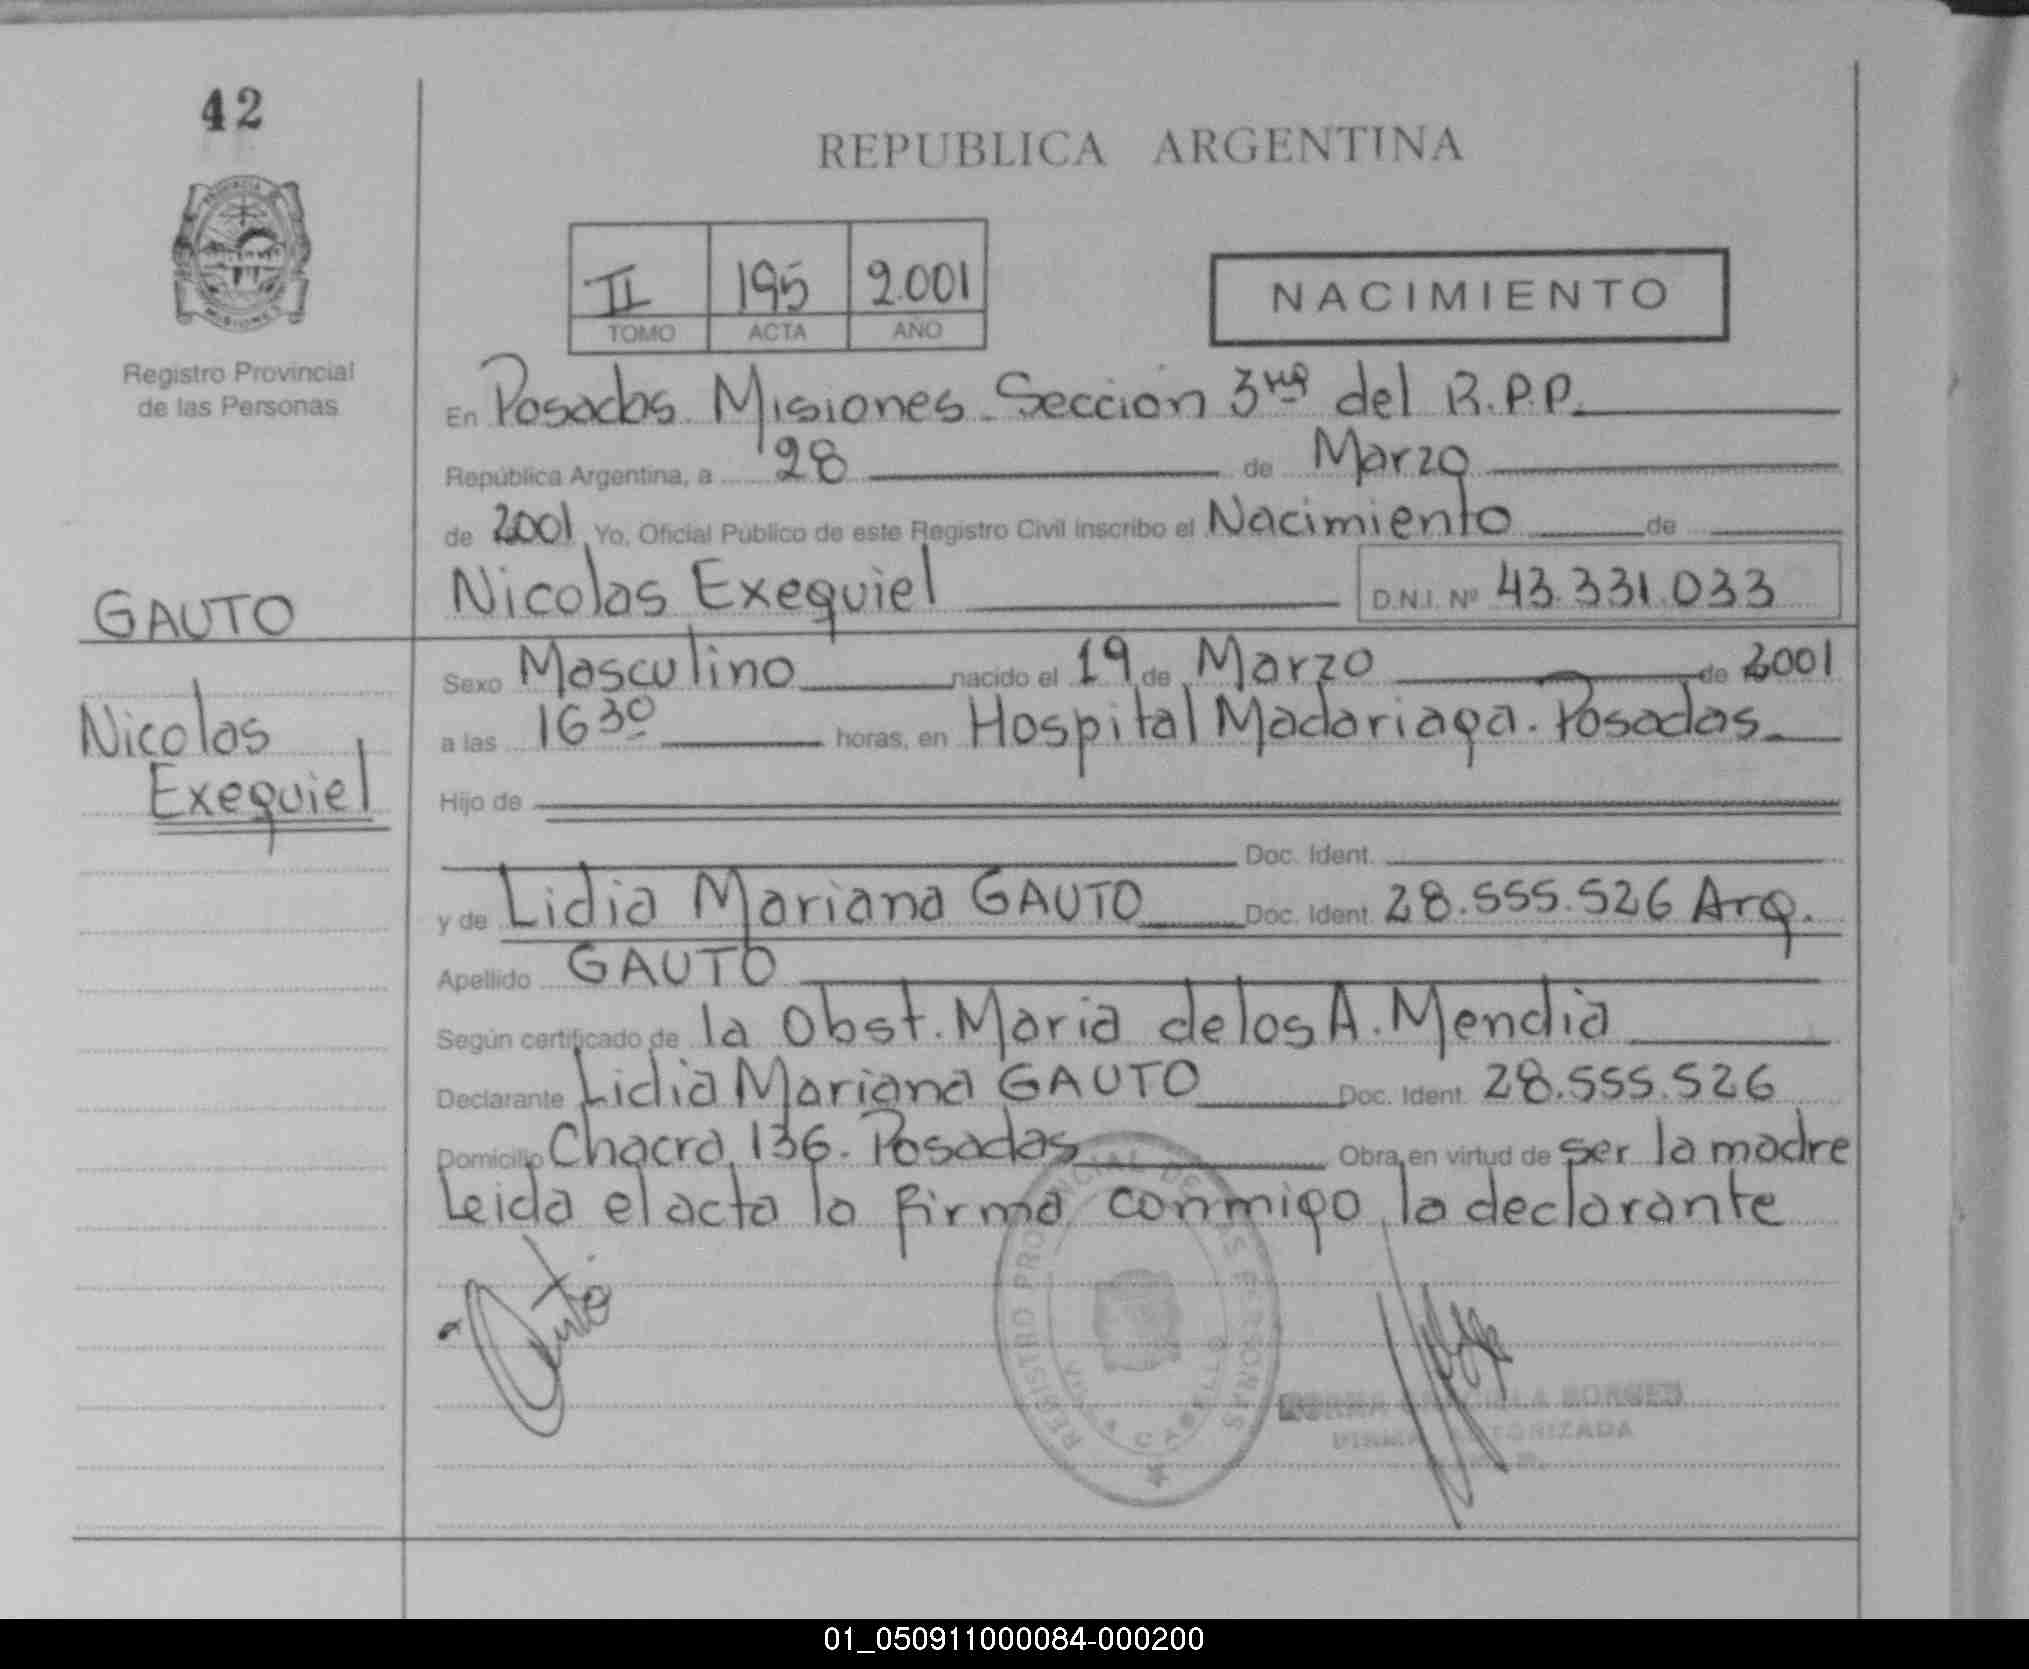 42
REPUBLICA ARGENTINA
PROVINCIA DE
MISIONES
II 195 2.001
TOMO ACTA AÑO
NACIMIENTO
Registro Provincial
de las Personas
En Posadas Misiones Sección 3ra del R.P.P.
República Argentina, a 28 de Marzo
de 2001 Yo, Oficial Público de este Registro Civil inscribo el Nacimiento de
Nicolas Exequiel D.N.I. Nº 43.331.033
GAUTO
Nicolas
Exequiel
Sexo Masculino nacido el 19 de Marzo de 2001
a las 16 30 horas, en Hospital Madariaga. Posadas
Hijo de
Doc. Ident.
y de Lidia Mariana GAUTO Doc. Ident. 28.555.526 Arg.
Apellido GAUTO
Según certificado de la Obst. Maria de los A. Mendia
Declarante Lidia Mariana GAUTO Doc. Ident. 28.555.526
Domicilio Chacra 136. Posadas Obra en virtud de ser la madre
Leida el acta la firma conmigo la declarante
REGISTRO PROVINCIAL DE LAS PERSONAS
VILLA CABELLO
BORGES
FIRMA AUTORIZADA
01_050911000084-000200